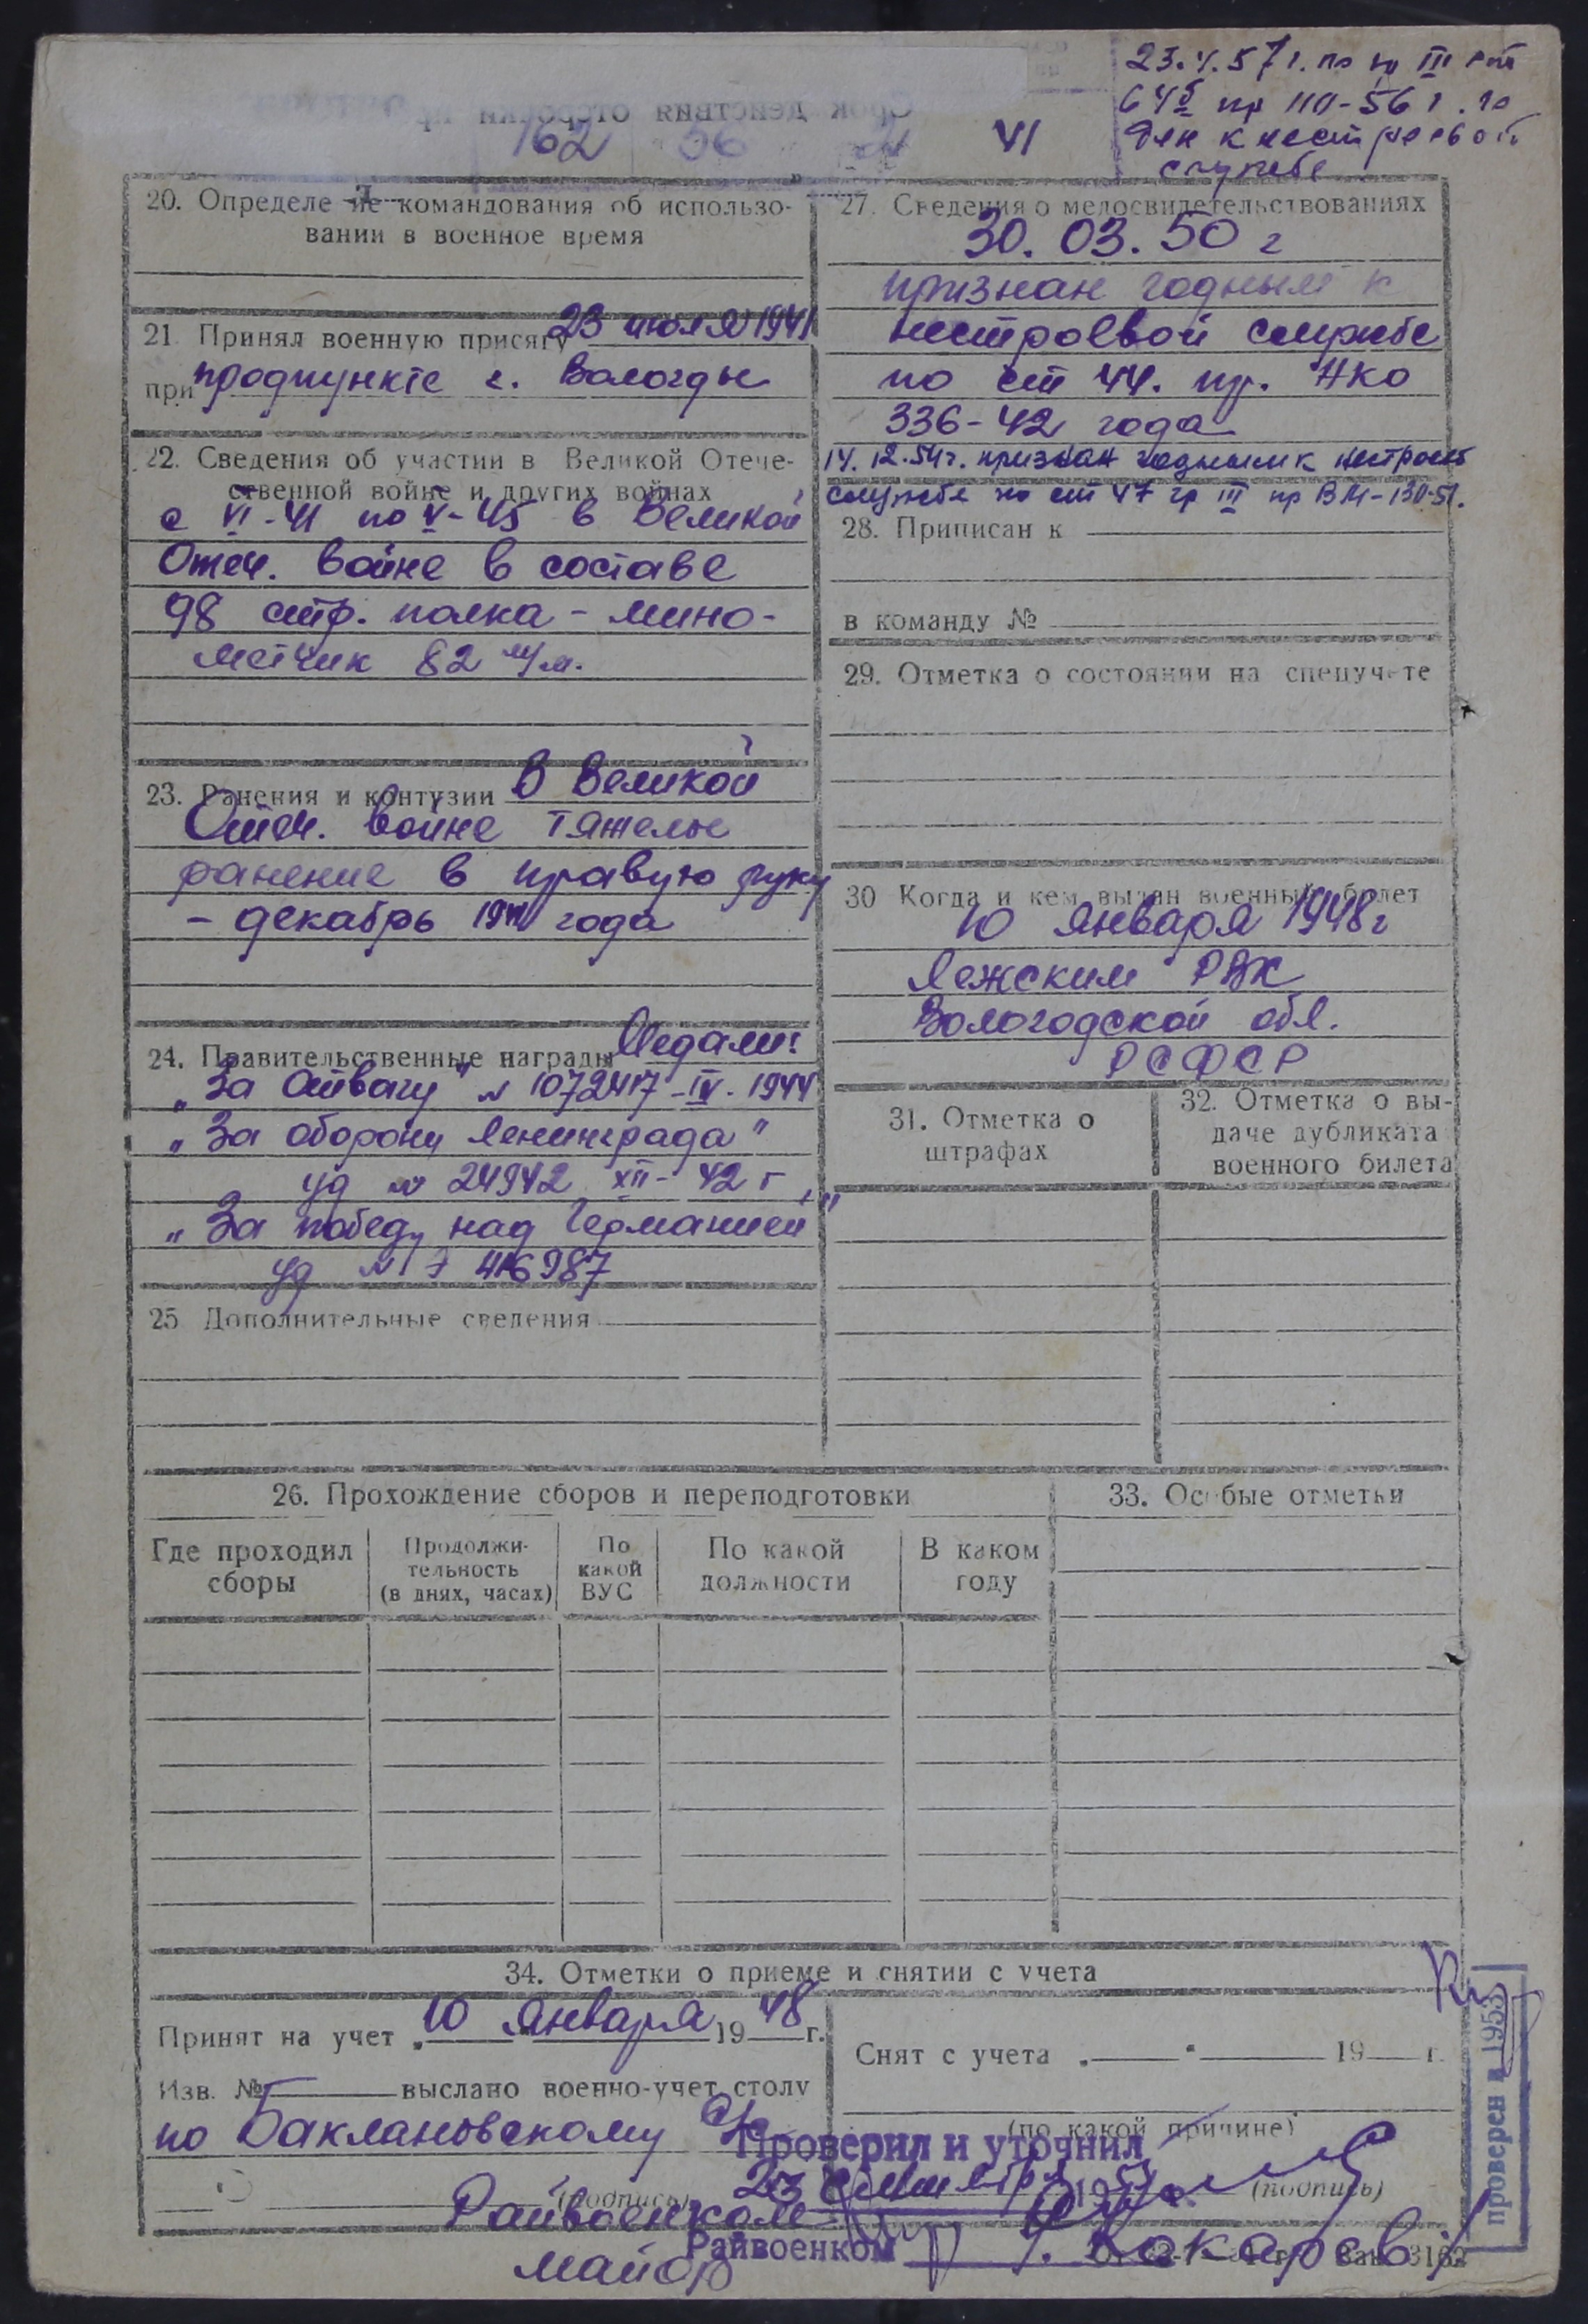 23.4.57 г. по гр III ст
64б пр 110-56 г. го
ден к нестроевой
службе
Срок действия отсрочки
162 56
VI
20. Определение командования об использо-
вании в военное время
21. Принял военную присягу 23 июля 1941
при продпункте г. Вологды
22. Сведения об участии в Великой Отече-
ственной войне и других войнах
с VI-41 по V-45 в Великой
Отеч. войне в составе
98 стр. полка - мино-
метчик 82 м/м.
23. Ранения и контузии в Великой
Отеч. войне тяжелое
ранение в правую руку
- декабрь 1941 года
24. Правительственные награды Медали:
„За Отвагу" № 1072417 - IV. 1944
„За оборону Ленинграда"
уд № 24942 XII- 42 г
„За победу над Германией"
уд № 416987
25 Дополнительные сведения
27. Сведения о медосвидетельствованиях
30. 03. 50 г
признан годным к
нестроевой службе
по ст 44. пр. НКО
336-42 года
14.12.54г. признан годным к нестроев
службе по ст 47 гр III пр ВМ-130-51.
28. Приписан к
в команду №
29. Отметка о состоянии на спецучете
30 Когда и кем выдан военный билет
10 января 1948 г
Лежским РВК
Вологодской обл.
РСФСР
31. Отметка о
штрафах
32. Отметка о вы-
даче дубликата
военного билета
26. Прохождение сборов и переподготовки
Где проходил
сборы
Продолжи-
тельность
(в днях, часах)
По
какой
ВУС
По какой
должности
В каком
году
33. Особые отметки
34. Отметки о приеме и снятии с учета
Принят на учет „10 января 1948 г.
Изв. № выслано военно-учет. столу
по Баклановскому с/с
(подпись)
Райвоенком
майор
Снят с учета „ " 19 г.
(по какой причине)
(подпись)
Проверил и уточнил
23 195
Райвоенком
Кокарев
Зак. 3162
проверен в 1953